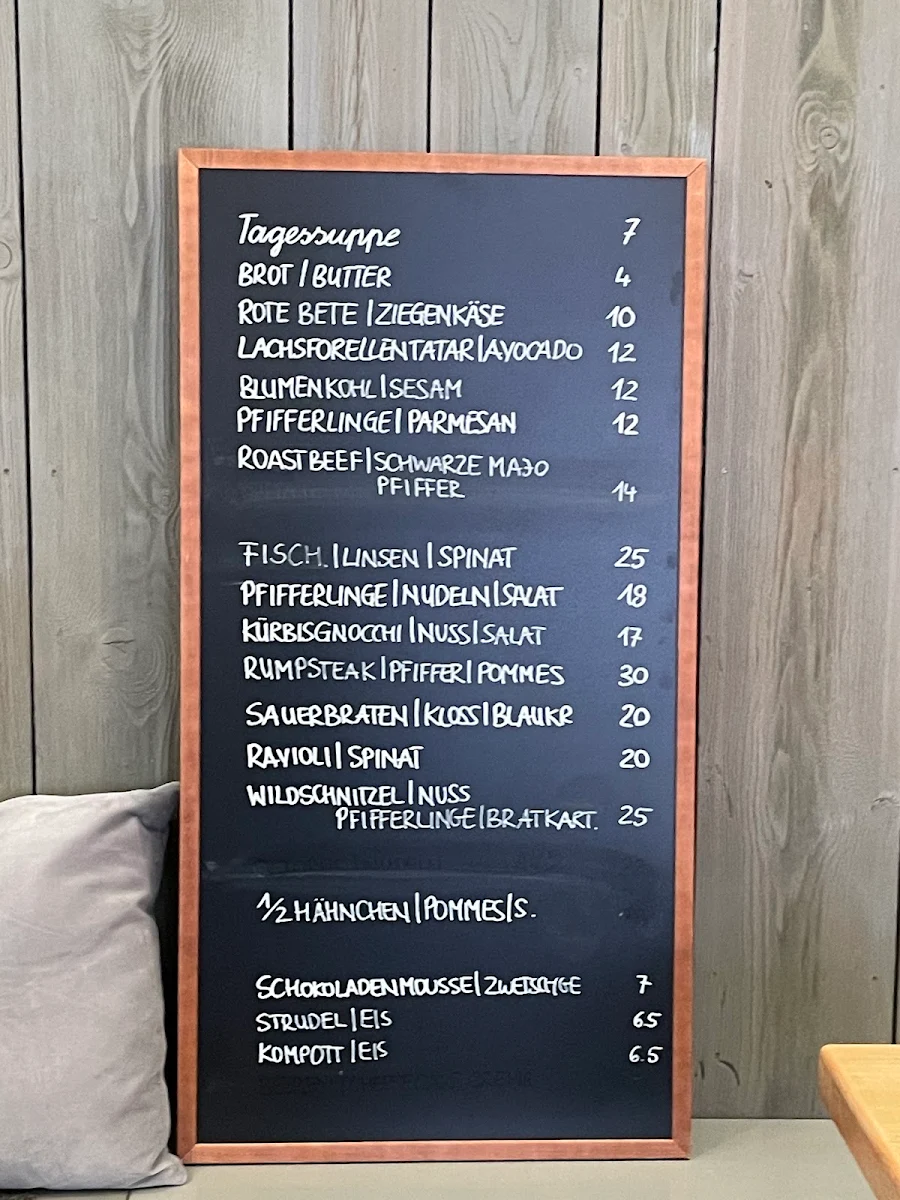 Tagessuppe 7
BROT | BUTTER 4
ROTE BETE | ZIEGENKÄSE 10
LACHSFORELLENTATAR | AVOCADO 12
BLUMENKOHL | SESAM 12
PFIFFERLINGE | PARMESAN 12
ROASTBEEF | SCHWARZE MAJO
PFIFFER 14
FISCH. | LINSEN | SPINAT 25
PFIFFERLINGE | NUDELN | SALAT 18
KÜRBISGNOCCHI | NUSS | SALAT 17
RUMPSTEAK | PFIFFER | POMMES 30
SAUERBRATEN | KLOSS | BLAUKR 20
RAVIOLI | SPINAT 20
WILDSCHNITZEL | NUSS
PFIFFERLINGE | BRATKART. 25
1/2 HÄHNCHEN | POMMES | S.
SCHOKOLADENMOUSSE | ZWETSCHGE 7
STRUDEL | EIS 65
KOMPOTT | EIS 6.5